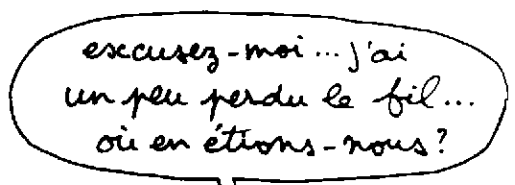 excusez-moi... j'ai
un peu perdu le fil...
où en étions-nous?